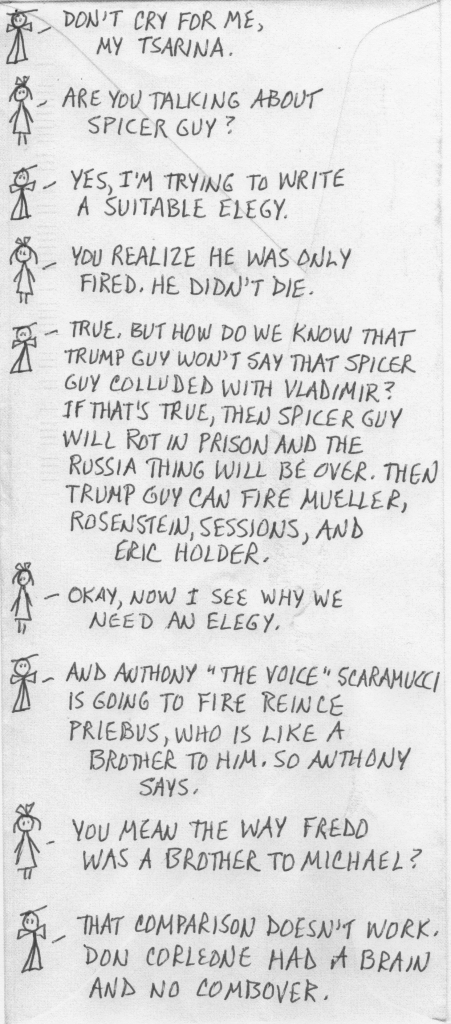 DON'T CRY FOR ME,
MY TSARINA.
ARE YOU TALKING ABOUT
SPICER GUY?
YES, I'M TRYING TO WRITE
A SUITABLE ELEGY.
YOU REALIZE HE WAS ONLY
FIRED. HE DIDN'T DIE.
TRUE. BUT HOW DO WE KNOW THAT
TRUMP GUY WON'T SAY THAT SPICER
GUY COLLUDED WITH VLADIMIR?
IF THAT'S TRUE, THEN SPICER GUY
WILL ROT IN PRISON AND THE
RUSSIA THING WILL BE OVER. THEN
TRUMP GUY CAN FIRE MUELLER,
ROSENSTEIN, SESSIONS, AND
ERIC HOLDER.
OKAY, NOW I SEE WHY WE
NEED AN ELEGY.
AND ANTHONY "THE VOICE" SCARAMUCCI
IS GOING TO FIRE REINCE
PRIEBUS, WHO IS LIKE A
BROTHER TO HIM. SO ANTHONY
SAYS.
YOU MEAN THE WAY FREDO
WAS A BROTHER TO MICHAEL?
THAT COMPARISON DOESN'T WORK.
DON CORLEONE HAD A BRAIN
AND NO COMBOVER.